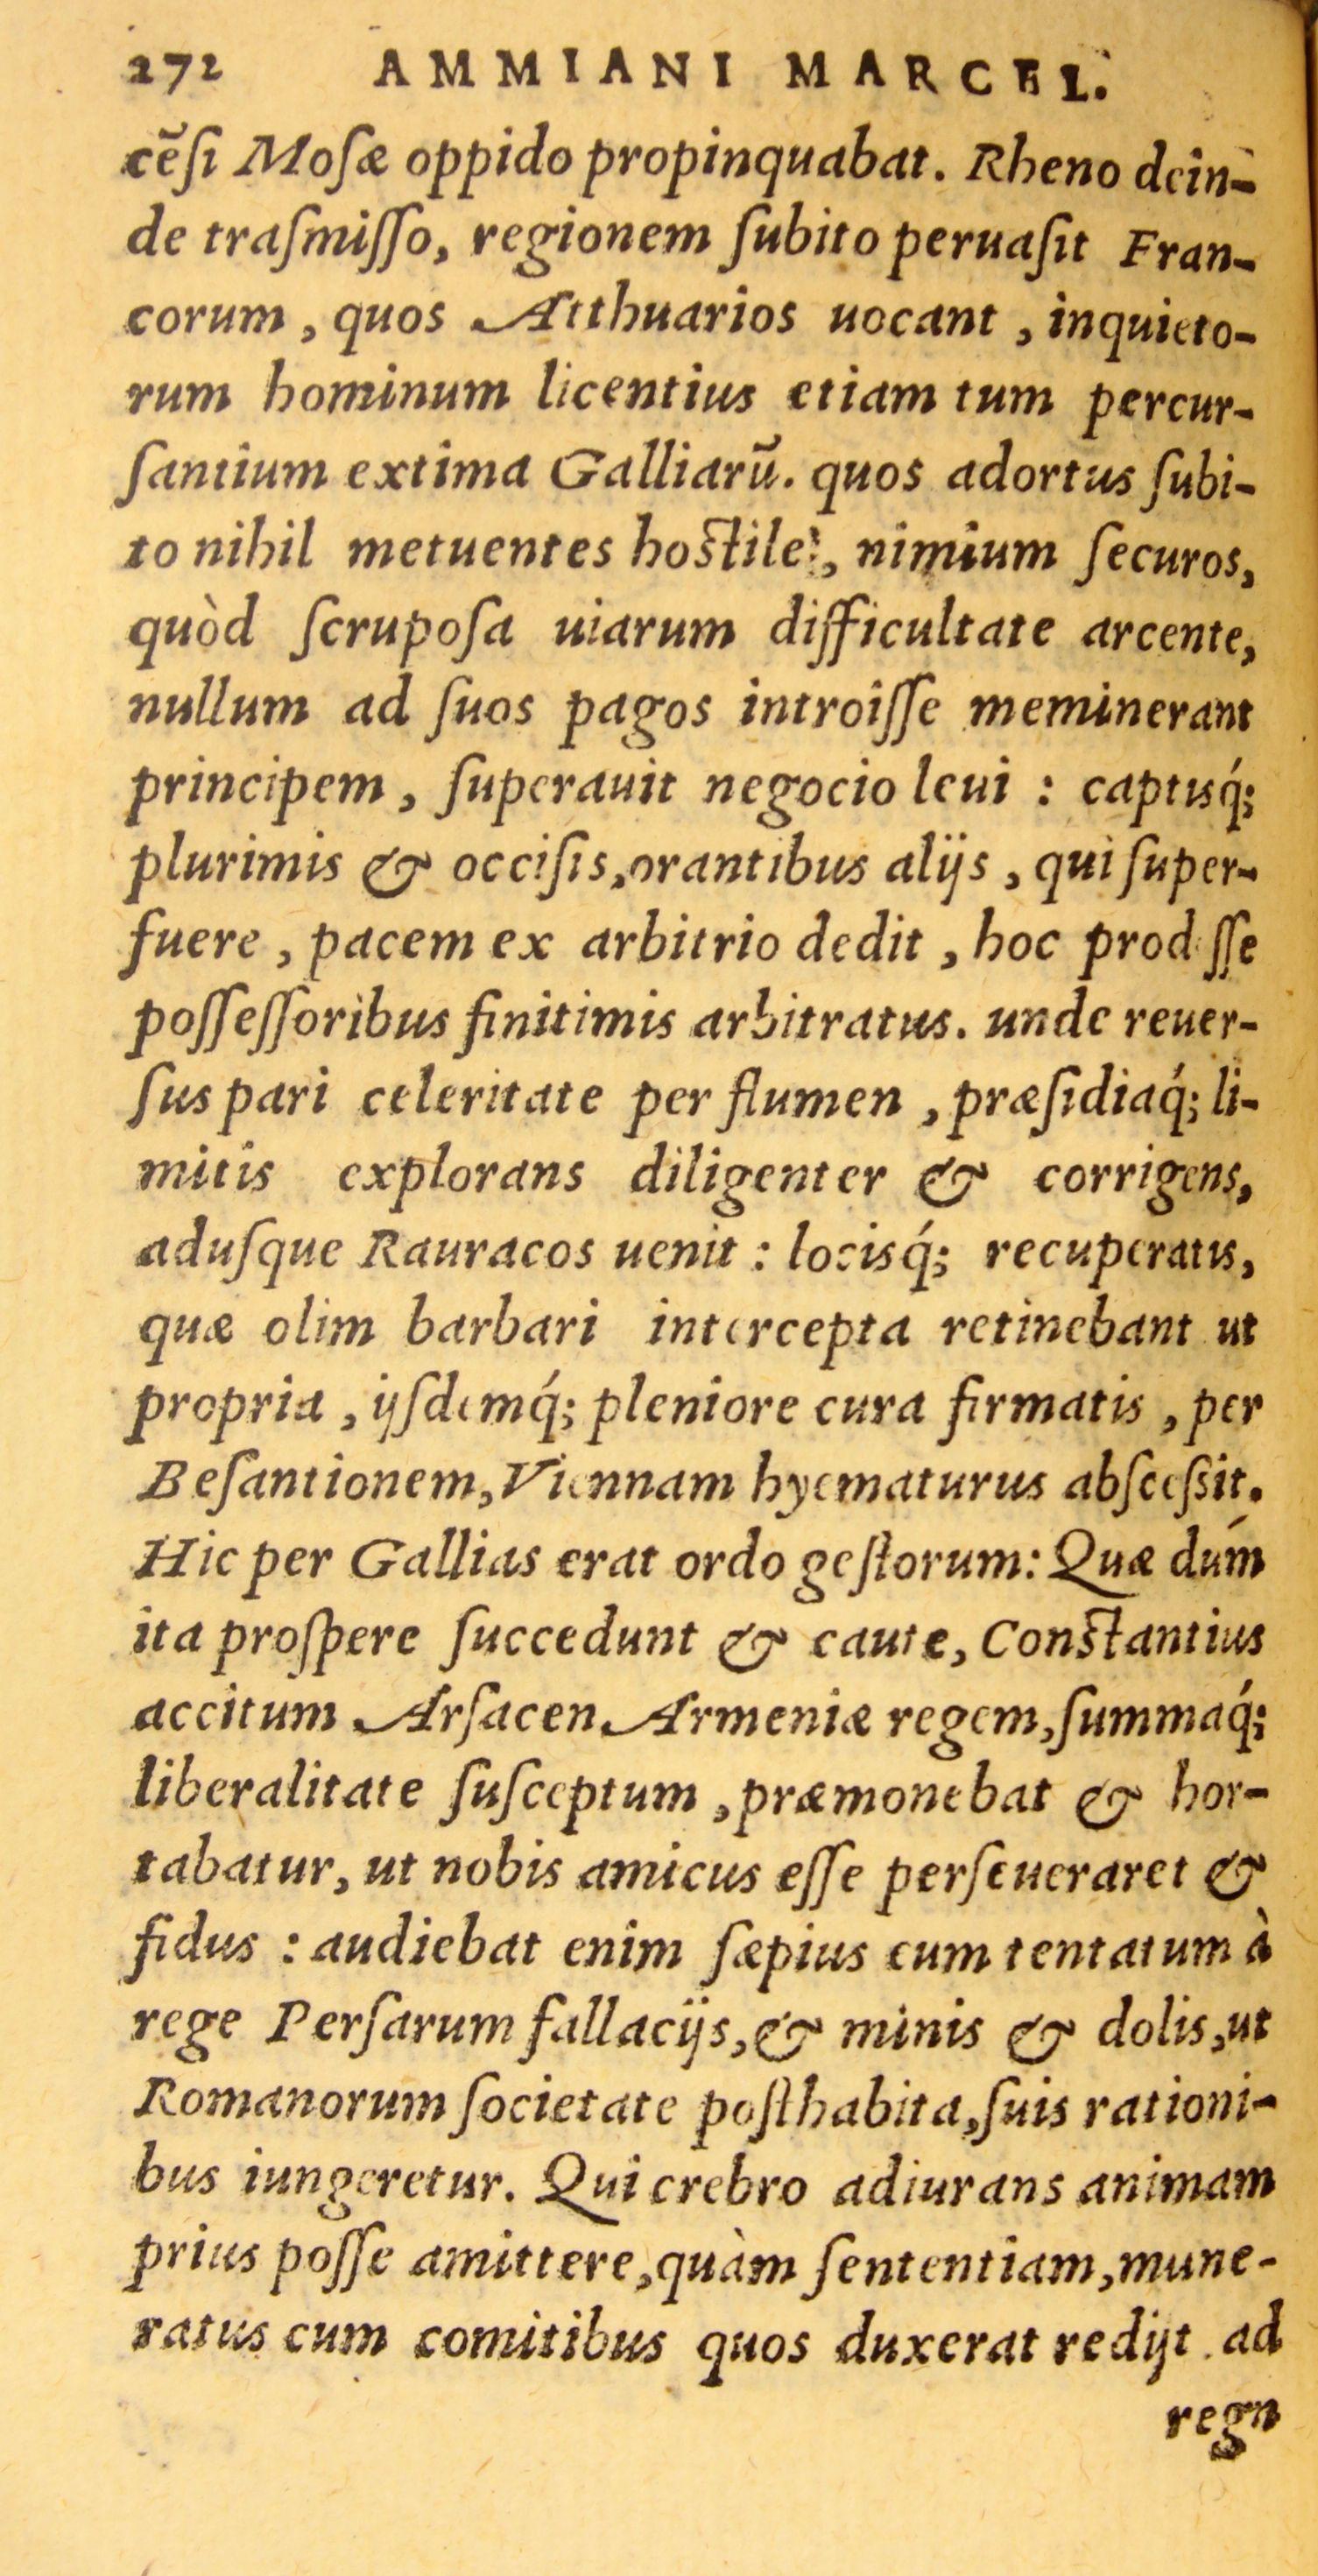 272 AMMIANI MARCEL.
cēſi Moſæ oppido propinquabat. Rheno dein-
de traſmiſſo, regionem ſubito peruaſit Fran-
corum, quos Atthuarios uocant, inquieto-
rum hominum licentius etiam tum percur-
ſantium extima Galliarū. quos adortus ſubi-
to nihil metuentes hoſtile, nimium ſecuros,
quòd ſcrupoſa uiarum difficultate arcente,
nullum ad ſuos pagos introiſſe meminerant
principem, ſuperauit negocio leui: captisq́;
plurimis & occiſis, orantibus alijs, qui ſuper-
fuere, pacem ex arbitrio dedit, hoc prod ſſe
poſſeſſoribus finitimis arbitratus. unde reuer-
ſus pari celeritate per flumen, præſidiaq́; li-
mitis explorans diligenter & corrigens,
aduſque Rauracos uenit: locisq́; recuperatis,
quæ olim barbari intercepta retinebant ut
propria, ijſdemq́; pleniore cura firmatis, per
Beſantionem, Viennam hyematurus abſceſsit.
Hic per Gallias erat ordo geſtorum: Quæ dúm
ita proſpere ſuccedunt & caute, Conſtantius
accitum Arſacen Armeniæ regem, ſummaq́;
liberalitate ſuſceptum, præmonebat & hor-
tabatur, ut nobis amicus eſſe perſeueraret &
fidus: audiebat enim ſæpius eum tentatum à
rege Perſarum fallacijs, & minis & dolis, ut
Romanorum ſocietate poſthabita, ſuis rationi-
bus iungeretur. Qui crebro adiurans animam
prius poſſe amittere, quàm ſententiam, mune-
ratus cum comitibus quos duxerat redijt ad
regn